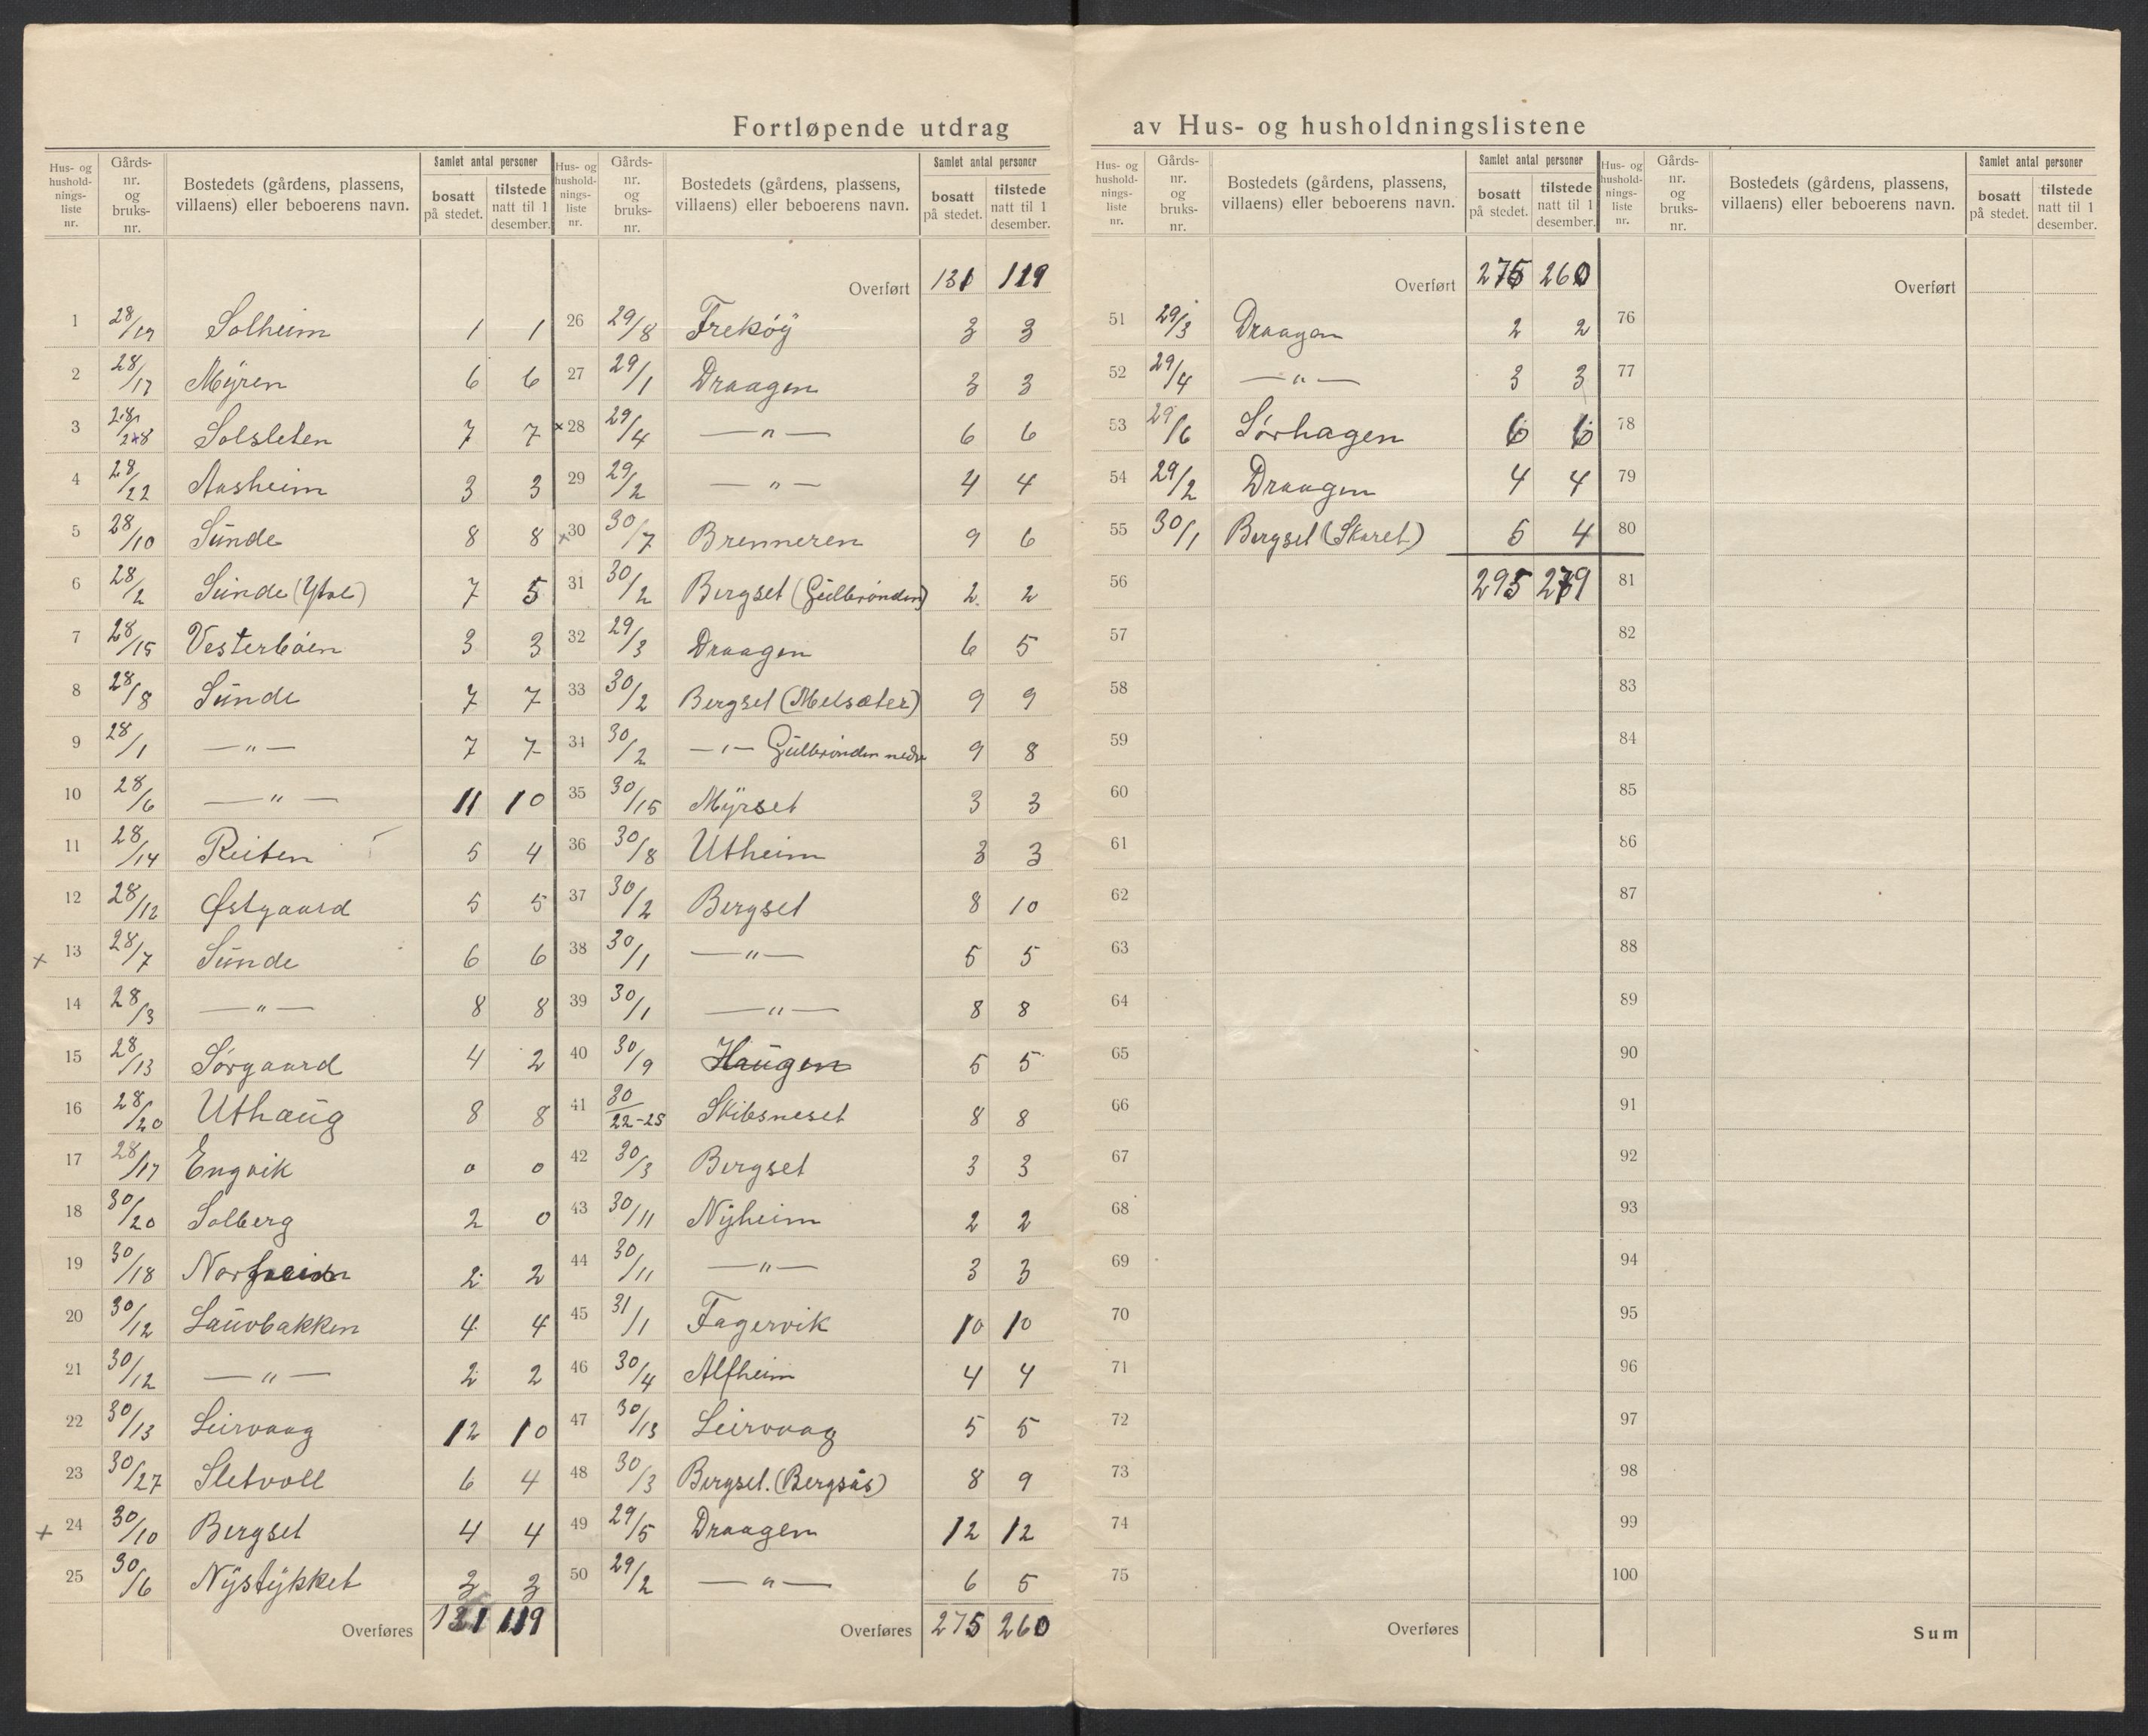 Fortløpende utdrag av Hus- og husholdningslistene
Hus- og husholdnings-liste nr. Gårds-nr. og bruks-nr. Bostedets (gårdens, plassens, villaens) eller beboerens navn. Samlet antal personer bosatt på stedet. tilstede natt til 1 desember.
1 28/19 Solheim 1 1
2 28/17 Myren 6 6
3 28/2+8 Solsleten 7 7
4 28/22 Aasheim 3 3
5 28/10 Sunde 8 8
6 28/2 Sunde (Ytre) 7 5
7 28/15 Vesterbøen 3 3
8 28/8 Sunde 7 7
9 28/1 — " — 7 7
10 28/6 — " — 11 10
11 28/14 Reiten 5 4
12 28/12 Østgaard 5 5
× 13 28/7 Sunde 6 6
14 28/3 — " — 8 8
15 28/13 Sørgaard 4 2
16 28/20 Uthaug 8 8
17 28/17 Engvik 0 0
18 30/20 Solberg 2 0
19 30/18 Norheim 2 2
20 30/12 Lauvbakken 4 4
21 30/12 — " — 2 2
22 30/13 Leirvaag 12 10
23 30/27 Sletvoll 6 4
+ 24 30/10 Bergset 4 4
25 30/6 Nystykket 3 3
Overføres 131 119
Hus- og husholdnings-liste nr. Gårds-nr. og bruks-nr. Bostedets (gårdens, plassens, villaens) eller beboerens navn. Samlet antal personer bosatt på stedet. tilstede natt til 1 desember.
Overført 131 119
26 29/8 Frekøy 3 3
27 29/1 Draagen 3 3
× 28 29/4 — " — 6 6
29 29/2 — " — 4 4
× 30 30/7 Brenneren 9 6
31 30/2 Bergset (Gulbrønden) 2 2
32 29/3 Draagen 6 5
33 30/2 Bergset (Melsæter) 9 9
34 30/2 — " — Gulbrønden nedre 9 8
35 30/15 Myrset 3 3
36 30/8 Utheim 3 3
37 30/2 Bergset 8 10
38 30/1 — " — 5 5
39 30/1 — " — 8 8
40 30/9 Haugen 5 5
41 30/22-25 Skibsneset 8 8
42 30/3 Bergset 3 3
43 30/11 Nyheim 2 2
44 30/11 — " — 3 3
45 31/1 Fagervik 10 10
46 30/4 Alfheim 4 4
47 30/13 Leirvaag 5 5
48 30/3 Bergset. (Bergsås) 8 9
49 29/5 Draagen 12 12
50 29/2 — " — 6 5
Overføres 275 260
Hus- og husholdnings-liste nr. Gårds-nr. og bruks-nr. Bostedets (gårdens, plassens, villaens) eller beboerens navn. Samlet antal personer bosatt på stedet. tilstede natt til 1 desember.
Overført 275 260
51 29/3 Draagen 2 2
52 29/4 — " — 3 3
53 29/6 Sørhagen 6 6
54 29/2 Draagen 4 4
55 30/1 Bergset (Skaret) 5 4
56 295 279
57
58
59
60
61
62
63
64
65
66
67
68
69
70
71
72
73
74
75
Overføres
Hus- og husholdnings-liste nr. Gårds-nr. og bruks-nr. Bostedets (gårdens, plassens, villaens) eller beboerens navn. Samlet antal personer bosatt på stedet. tilstede natt til 1 desember.
Overført
76
77
78
79
80
81
82
83
84
85
86
87
88
89
90
91
92
93
94
95
96
97
98
99
100
Sum